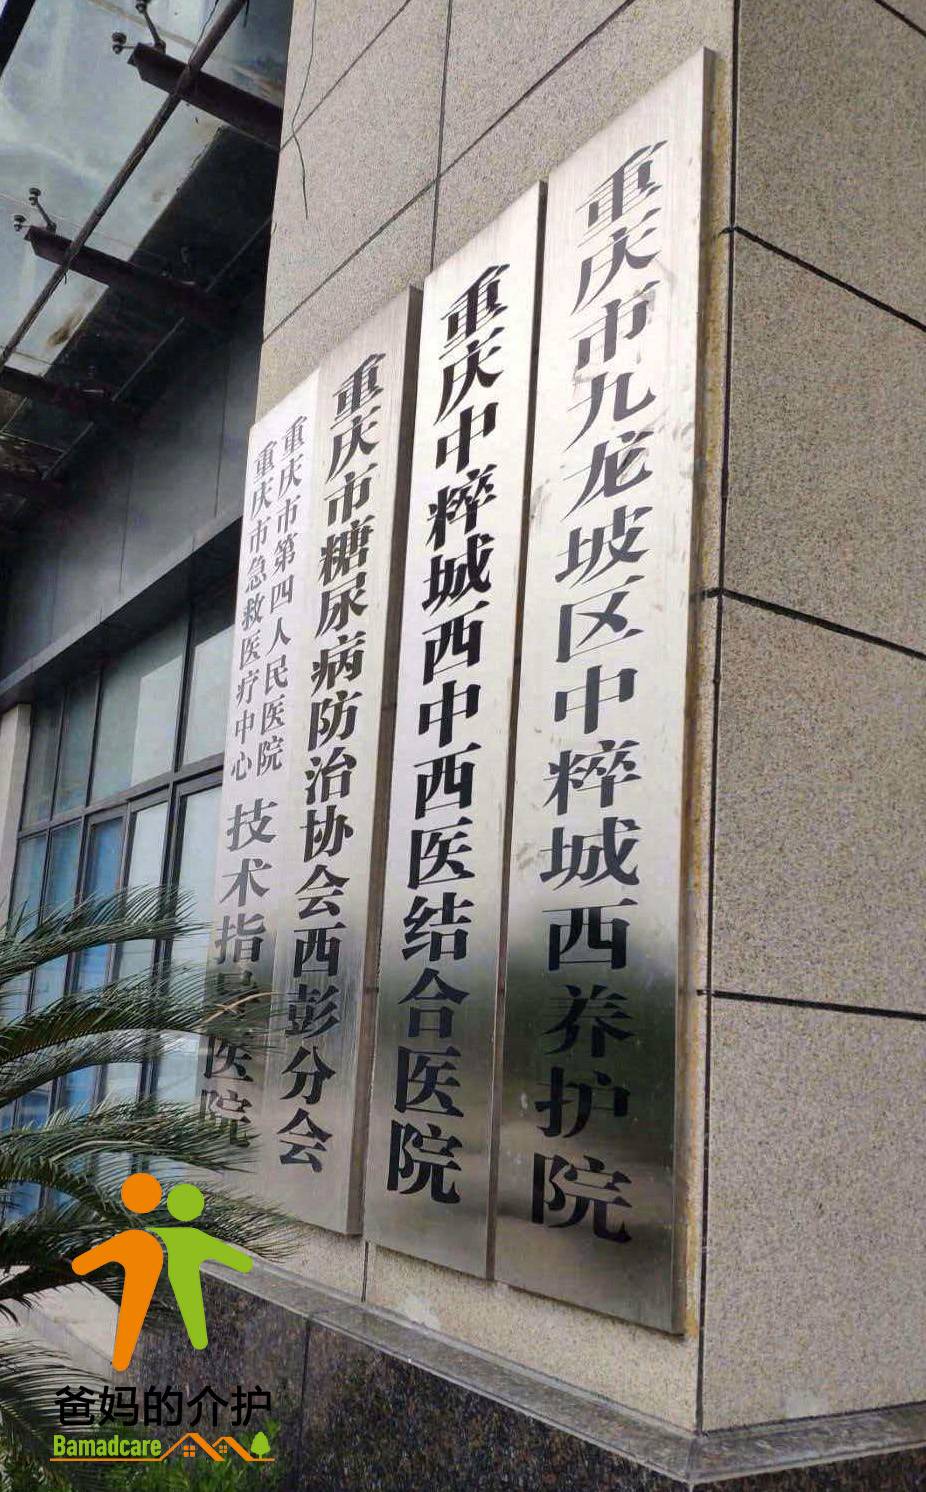 重庆市九龙坡区中粹城西养护院
重庆中粹城西中西医结合医院
重庆市糖尿病防治协会西彭分会
重庆市第四人民医院
重庆市急救医疗中心
技术指导医院
爸妈的介护
Bamadcare